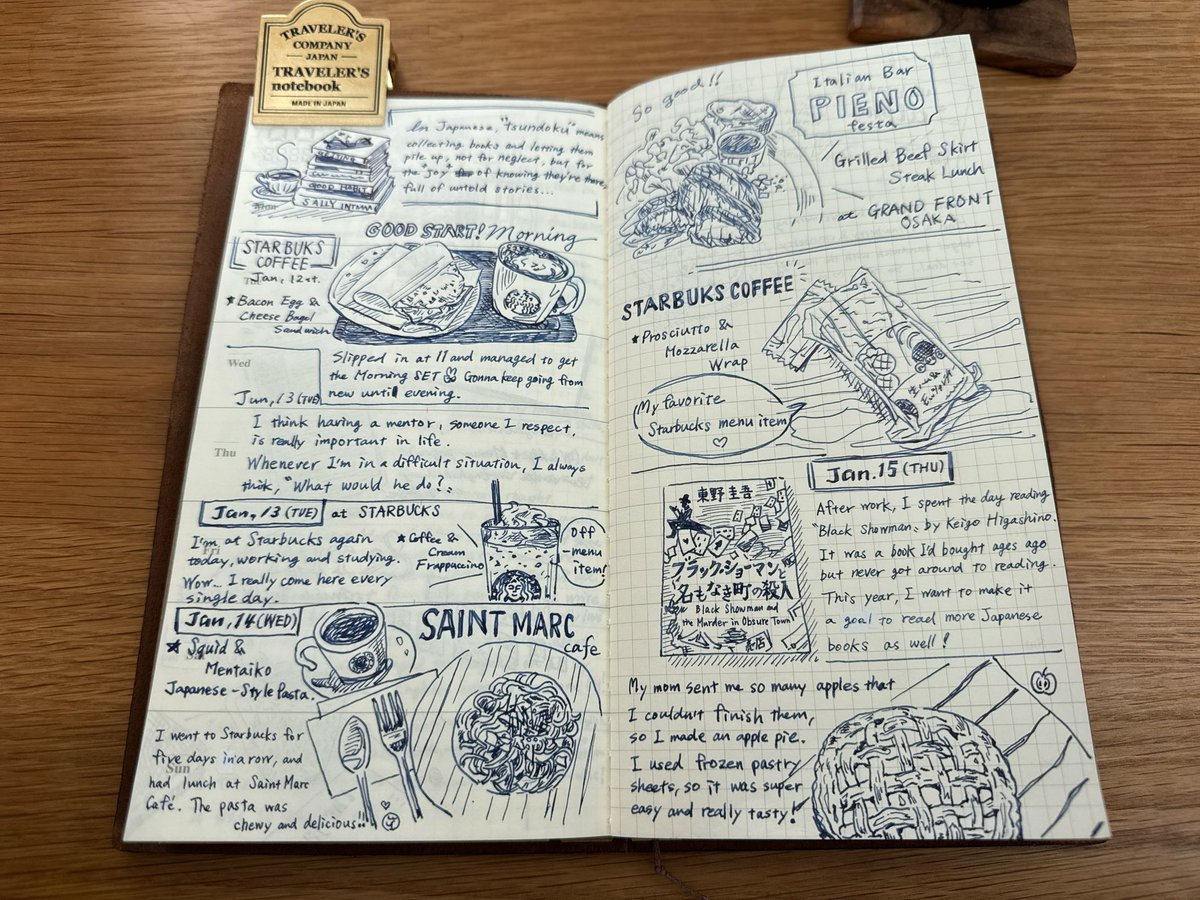 TRAVELER'S
COMPANY
JAPAN
TRAVELER'S
notebook
MADE IN JAPAN
In Japanese, "tsundoku" means
collecting books and letting them
pile up, not for neglect, but for
the "joy" of knowing they're there,
full of untold stories...
SALLY
GOOD START! Morning
STARBUKS
COFFEE
Jan, 12st.
★Bacon Egg &
Cheese Bagel
Sandwich
Wed
Slipped in at 11 and managed to get
the Morning SET Gonna keep going from
new until evening.
Jun, 13 (TUE)
I think having a mentor, someone I respect,
is really important in life.
Thu
Whenever I'm in a difficult situation, I always
think, "What would he do?"
Jan, 13 (TUE) at STARBUCKS
I'm at Starbucks again
today, working and studying.
Wow... I really come here every
single day.
Fri
★Coffee &
Cream
Frappuccino
Off
-menu
item!
Jan, 14 (WED)
★ Squid &
Mentaiko
Japanese-Style Pasta.
SAINT MARC
cafe
I went to Starbucks for
five days in a row, and
Sun
had lunch at Saint Marc
Café. The pasta was
chewy and delicious!!
So good!!
Italian Bar
PIENO
festa
Grilled Beef Skirt
Steak Lunch
at GRAND FRONT
OSAKA
STARBUKS COFFEE
★Prosciutto &
Mozzarella
Wrap
My favorite
Starbucks menu item
♡
Jan.15 (THU)
東野圭吾
ブラック・ショーマンと
名もなき町の殺人
Black Showman and
the Murder in Obsure Town
After work, I spent the day reading
"Black Showman" by Keigo Higashino.
It was a book I'd bought ages ago
but never got around to reading.
This year, I want to make it
a goal to read more Japanese
books as well!
My mom sent me so many apples that
I couldn't finish them,
so I made an apple pie.
I used frozen pastry
sheets, so it was super
easy and really tasty!